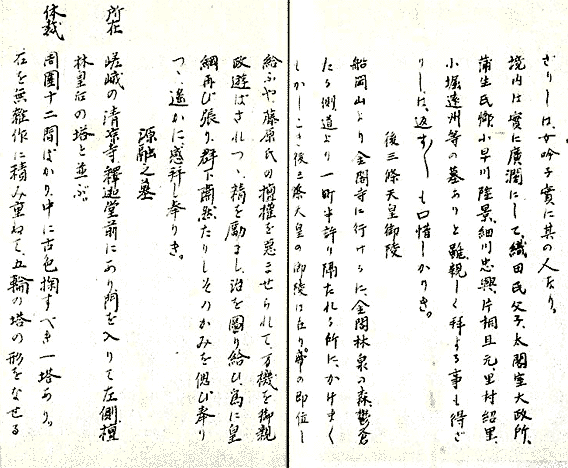 ざりしは、女吟子實に其の人なり。
境内は實に廣潤にして、織田氏父子、太閤室大政所、
蒲生氏郷、小早川隆景、細川忠興、片桐且元、里村紹里、
小堀遠州等の墓ありと雖、親しく拜する事も得ざ
りしは、返す〲も口惜しかりき。
後三條天皇御陵
船岡山より金閣寺に行ける、に、金閣林泉の森鬱倉
たる側道より一町半許り隔たれる所に、かけまく
もかしこき後三條天皇の御陵は在り、帝の即位し
給ふや、藤原氏の擅權を惡ませられて、万機を御親
政遊ばされつゝ、精を勵まし治を圖り給ひ、爲に皇
綱再び張り、群下肅然たりしそのかみを偲び奉り
つゝ、遙かに感拜し奉りき。
源融之墓
所在 嵯峨の清凉寺釋迦堂前にあり、門を入りて左側檀
林皇后の塔と並ぶ。
体裁 周圍十二間ばかり、中に古色掬すべき一塔あり。
石を無雜作に積み重ねて、五輪の塔の形をなせる